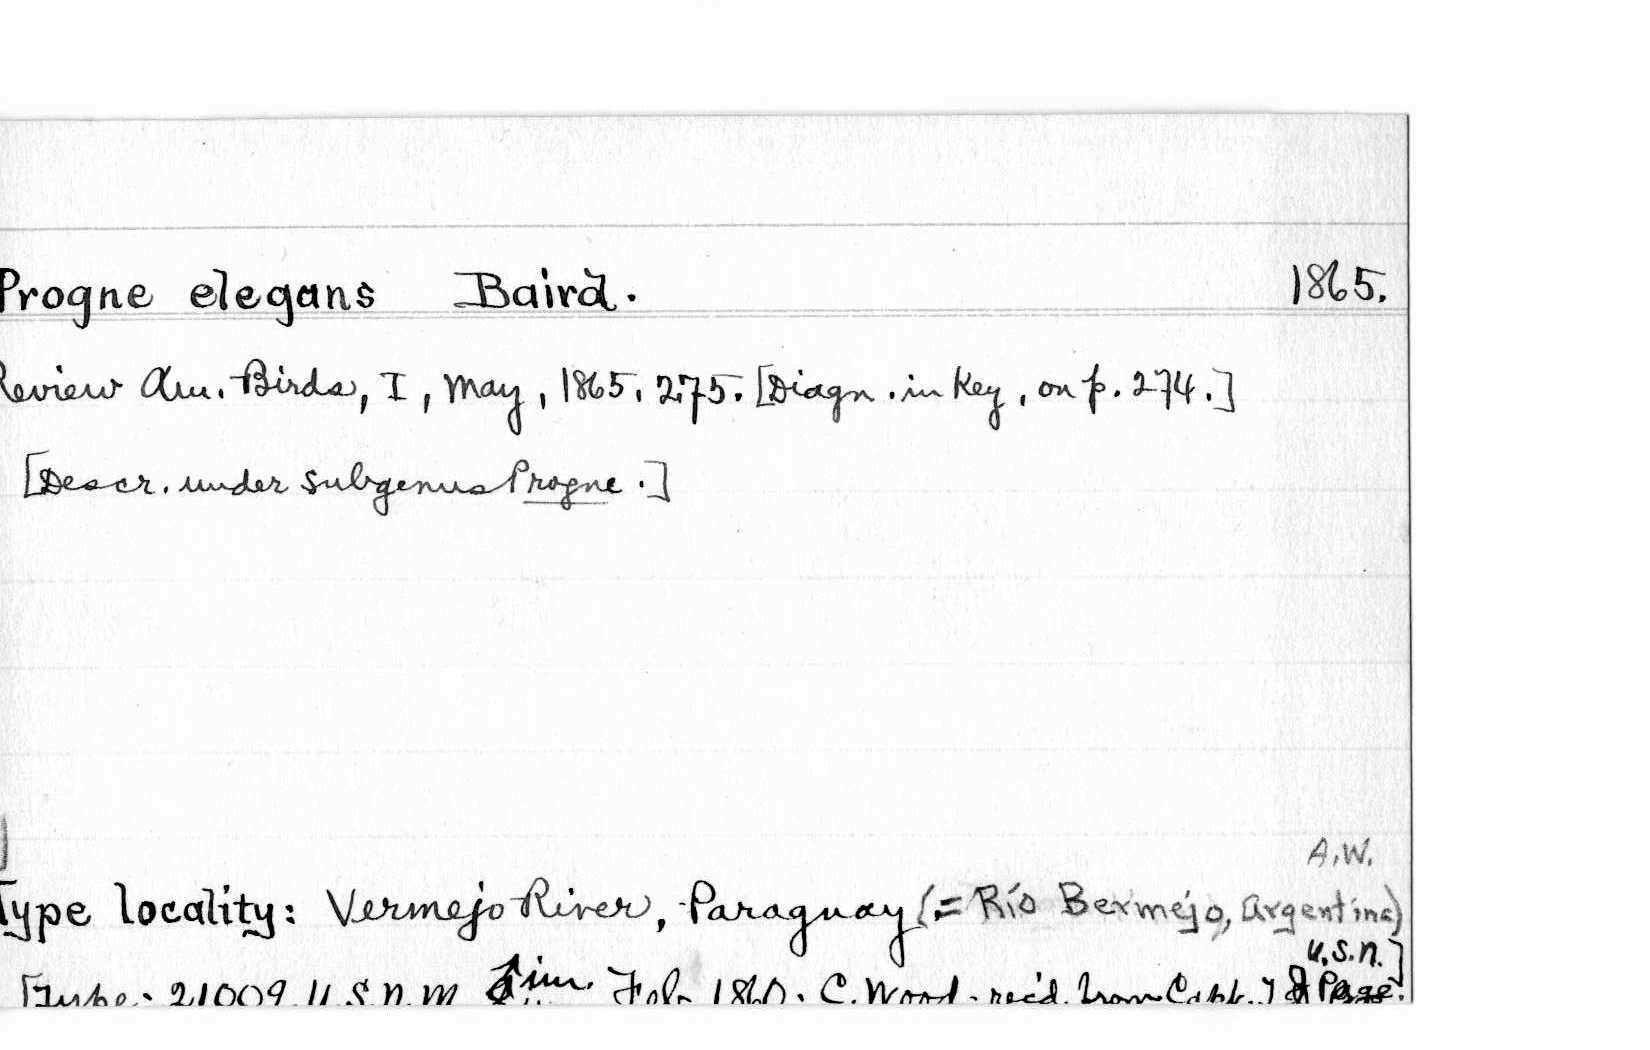 Progne elegans Baird. 1865.
Review Am. Birds, I, May, 1865, 275. [Diagn. in Key, on p. 274.]
[Descr. under subgenus Progne.]
A.W.
Type locality: Vermejo River, Paraguay (= Río Bermejo, Argentina)
U.S.N.]
[Type: 21009 U.S.N.M. im. Feb. 1860. C. Wood. rec'd. from Capt. T J Page.